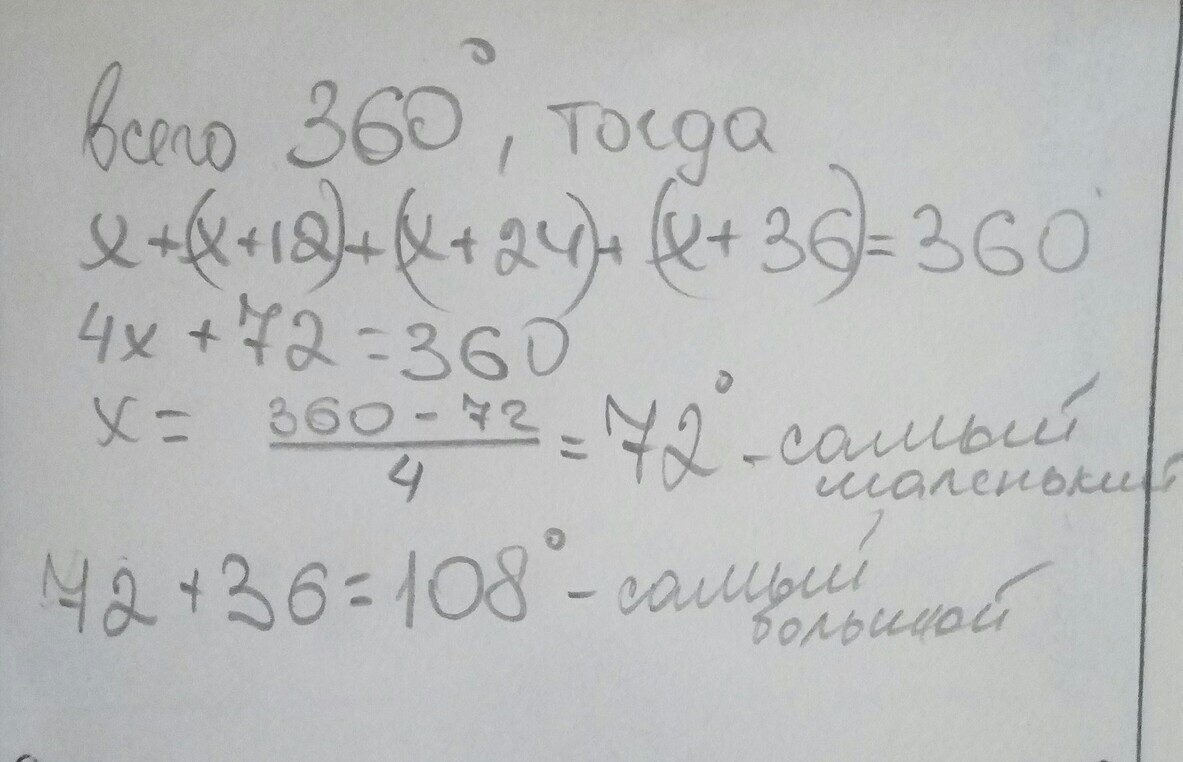 всего 360°, тогда
x+(x+12)+(x+24)+(x+36)=360
4x+72=360
x= 360-72/4 = 72° - самый маленький
72+36=108° - самый большой